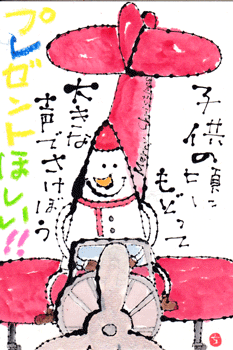 子供の頃に
もどって
大きな
声でさけぼう
プレゼントほしい!!